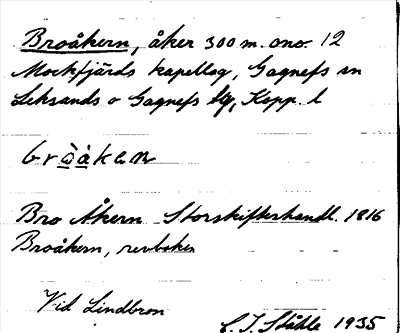 Broåkern, åker 300 m. ono. 12
Mockfjärds kapellag, Gagnefs sn
Leksands o Gagnefs tg, Kopp. l
bròåkεn
Bro Åkern Storskifteshandl. 1816
Broåkern, revboken
Vid Lindbron
C. I. Ståhle 1935